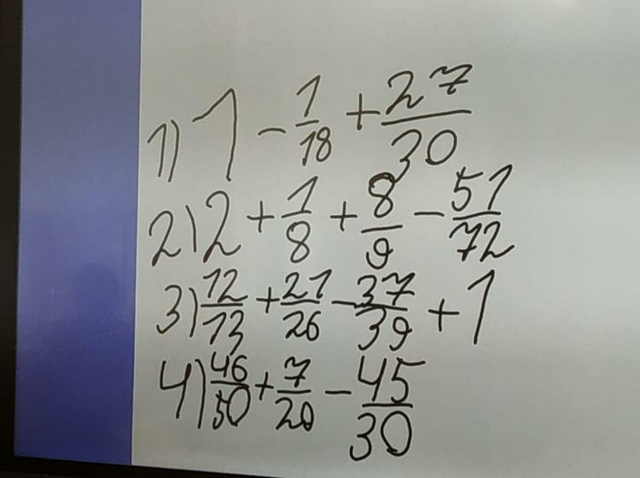 1) 1 - 1/18 + 27/30
2) 2 + 1/8 + 8/9 - 51/72
3) 12/13 + 21/26 - 37/39 + 1
4) 46/50 + 7/20 - 45/30